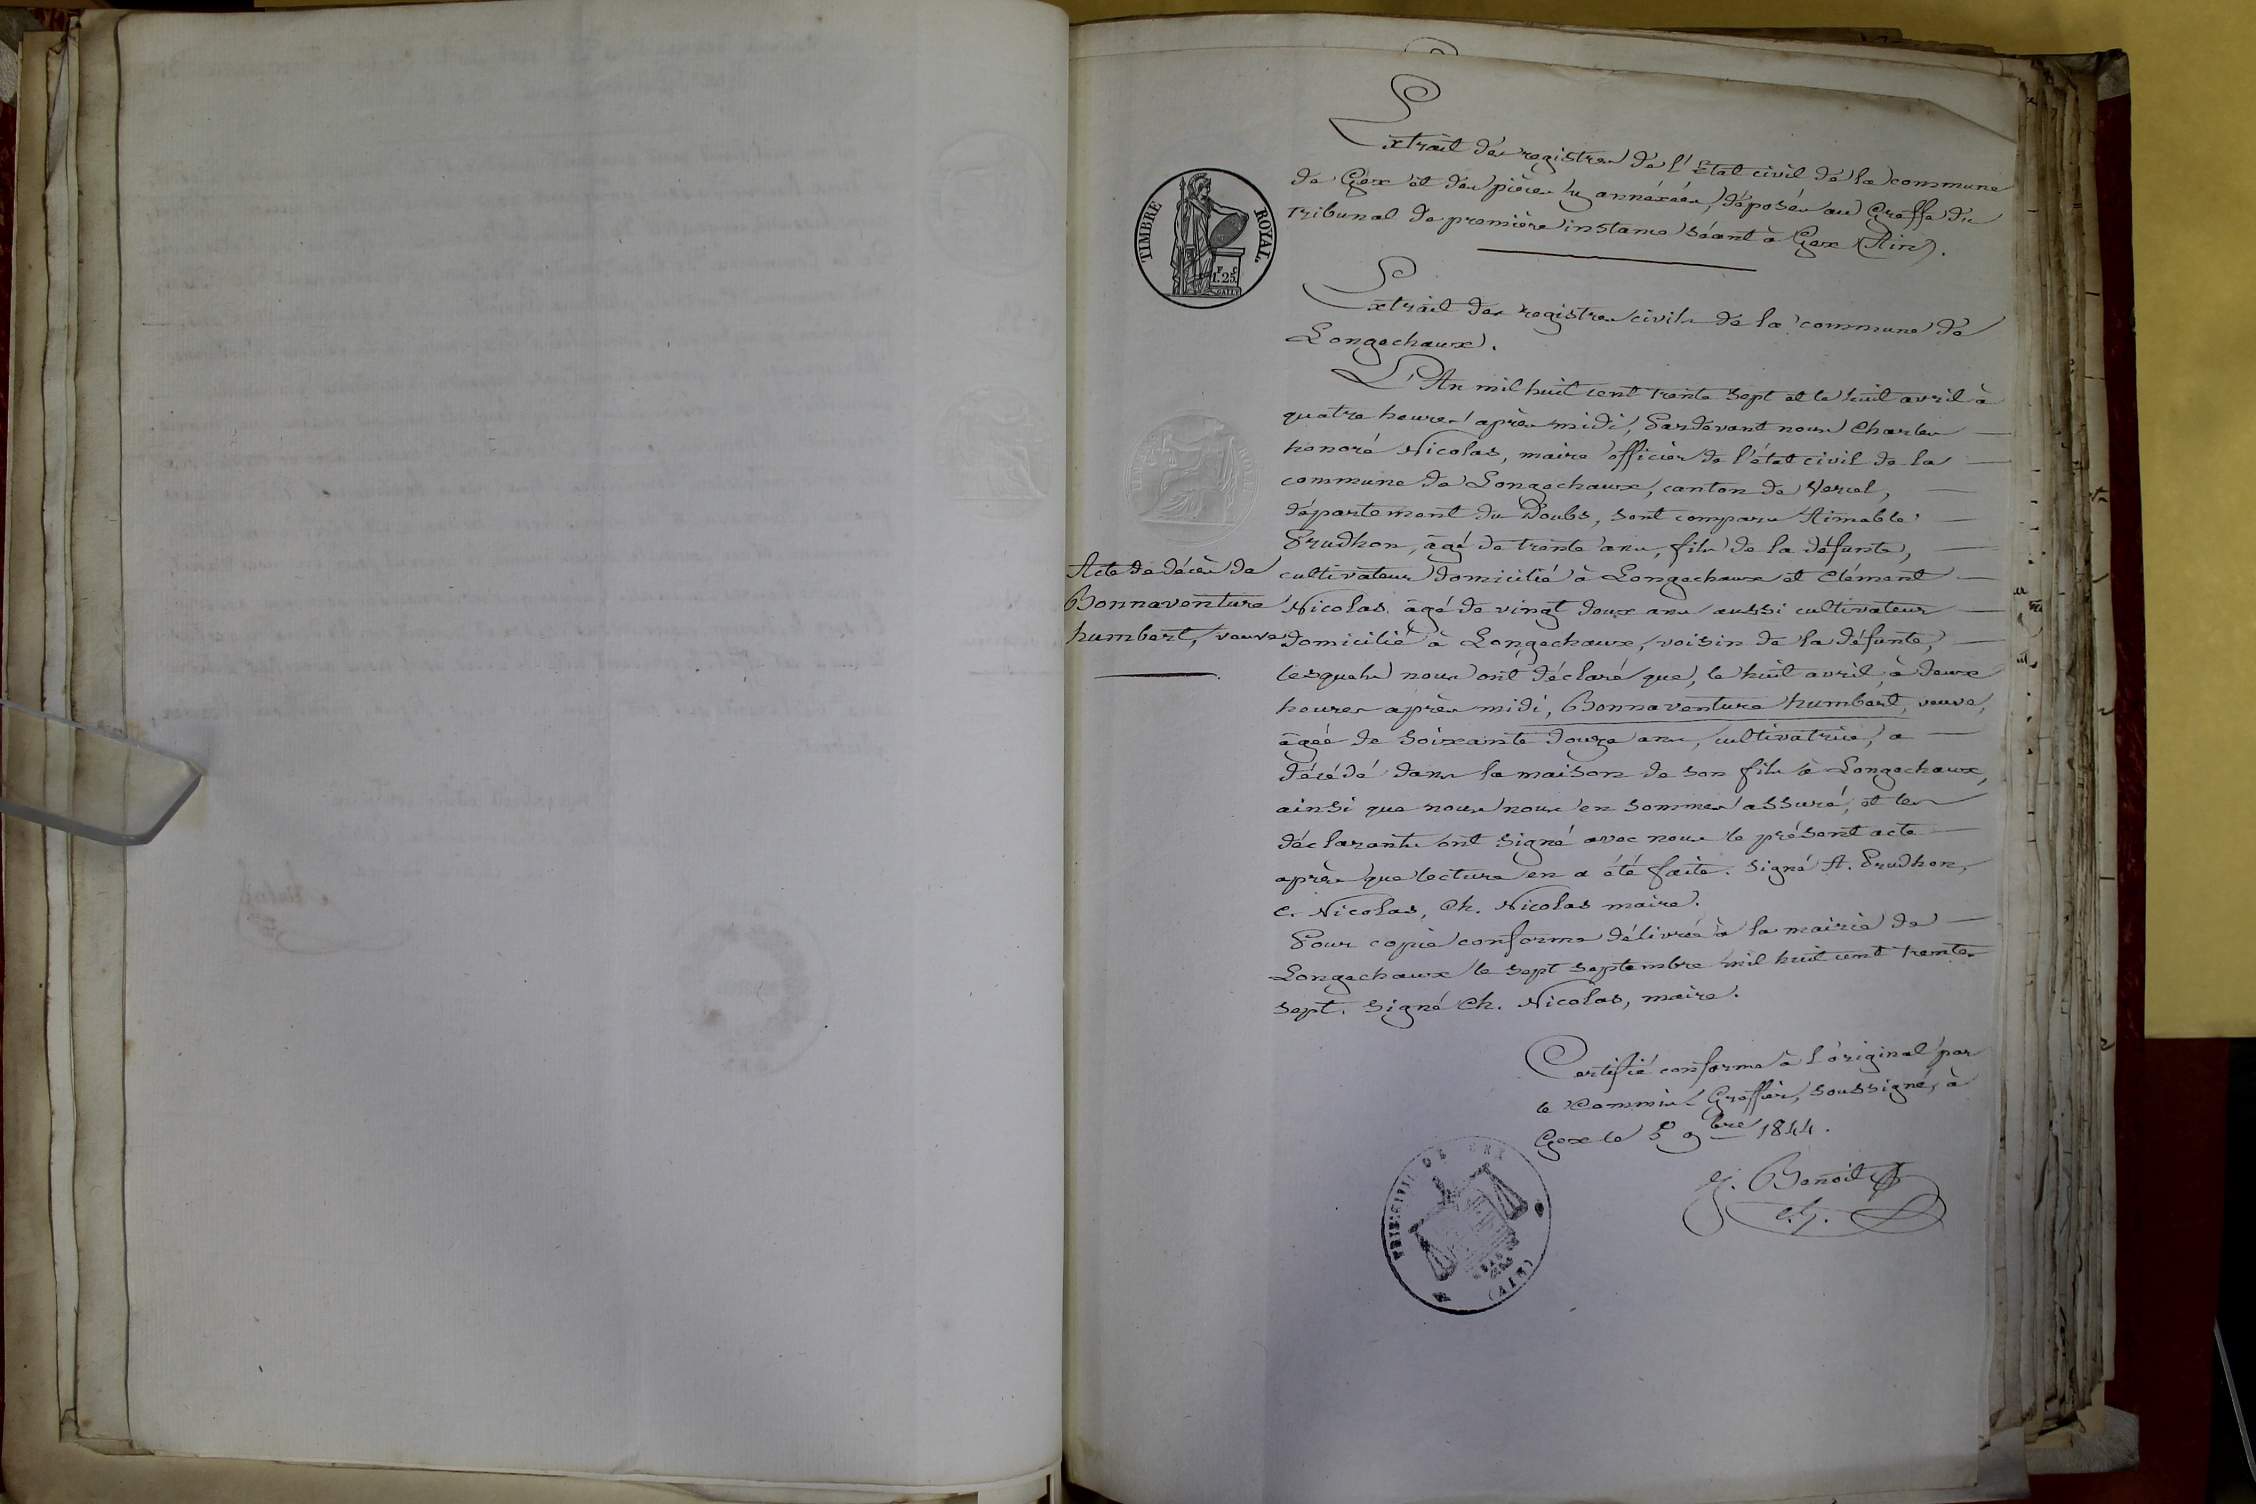 Extrait des registres de l'Etat civil de la commune
de Gex et des pièces y annéxées, déposés au Greffe du
tribunal de première instance séant à Gex (Ain).
TIMBRE ROYAL.
F. C.
1. 25.
Extrait des registres civils de la commune de
Longechaux.
L'An mil huit cent trente sept et le huit avril à
quatre heures après midi, Pardevant nous Charles
honoré Nicolas, maire officier de l'état civil de la
commune de Longechaux, canton de Vercel,
département du Doubs, sont comparu Aimable
Prudhon, âgé de trente ans, fils de la défunte,
Acte de décès de
Bonnaventure
humbert, veuve
cultivateur domicilié à Longechaux et Clément
Nicolas âgé de vingt deux ans aussi cultivateur
domicilié à Longechaux, voisin de la défunte,
lesquels nous ont déclaré que, le huit avril, à deux
heures après midi, Bonnaventure humbert, veuve,
âgée de soixante douze ans, cultivatrice, a
décédé dans la maison de son fils à Longechaux,
ainsi que nous nous en sommes assuré, et les
déclarants ont signé avec nous le présent acte
après que lecture en a été faite. Signé A. Prudhon,
C. Nicolas, Ch. Nicolas maire.
Pour copie conforme délivrée à la mairie de
Longechaux le sept septembre mil huit cent trente-
sept. Signé Ch. Nicolas, maire.
Certifié conforme à l'original par
le Commis Greffier, soussigné, à
Gex le 5 9bre 1844.
Benoit
c. g.
TRIB. CIVIL DE GEX
(AIN)